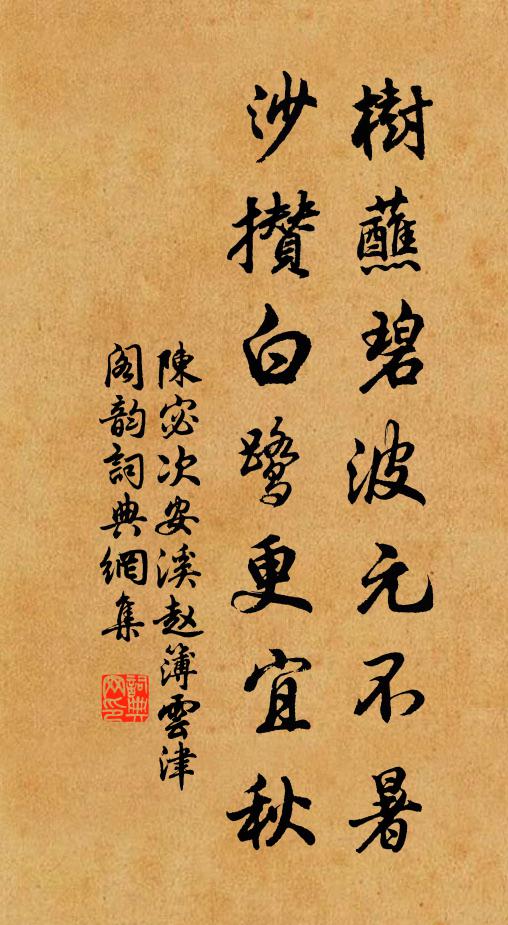 樹蘸碧波元不暑
沙攢白鷺更宜秋
陳宓次安溪赵簿雲津
阁韵詞典網集
詞典网印